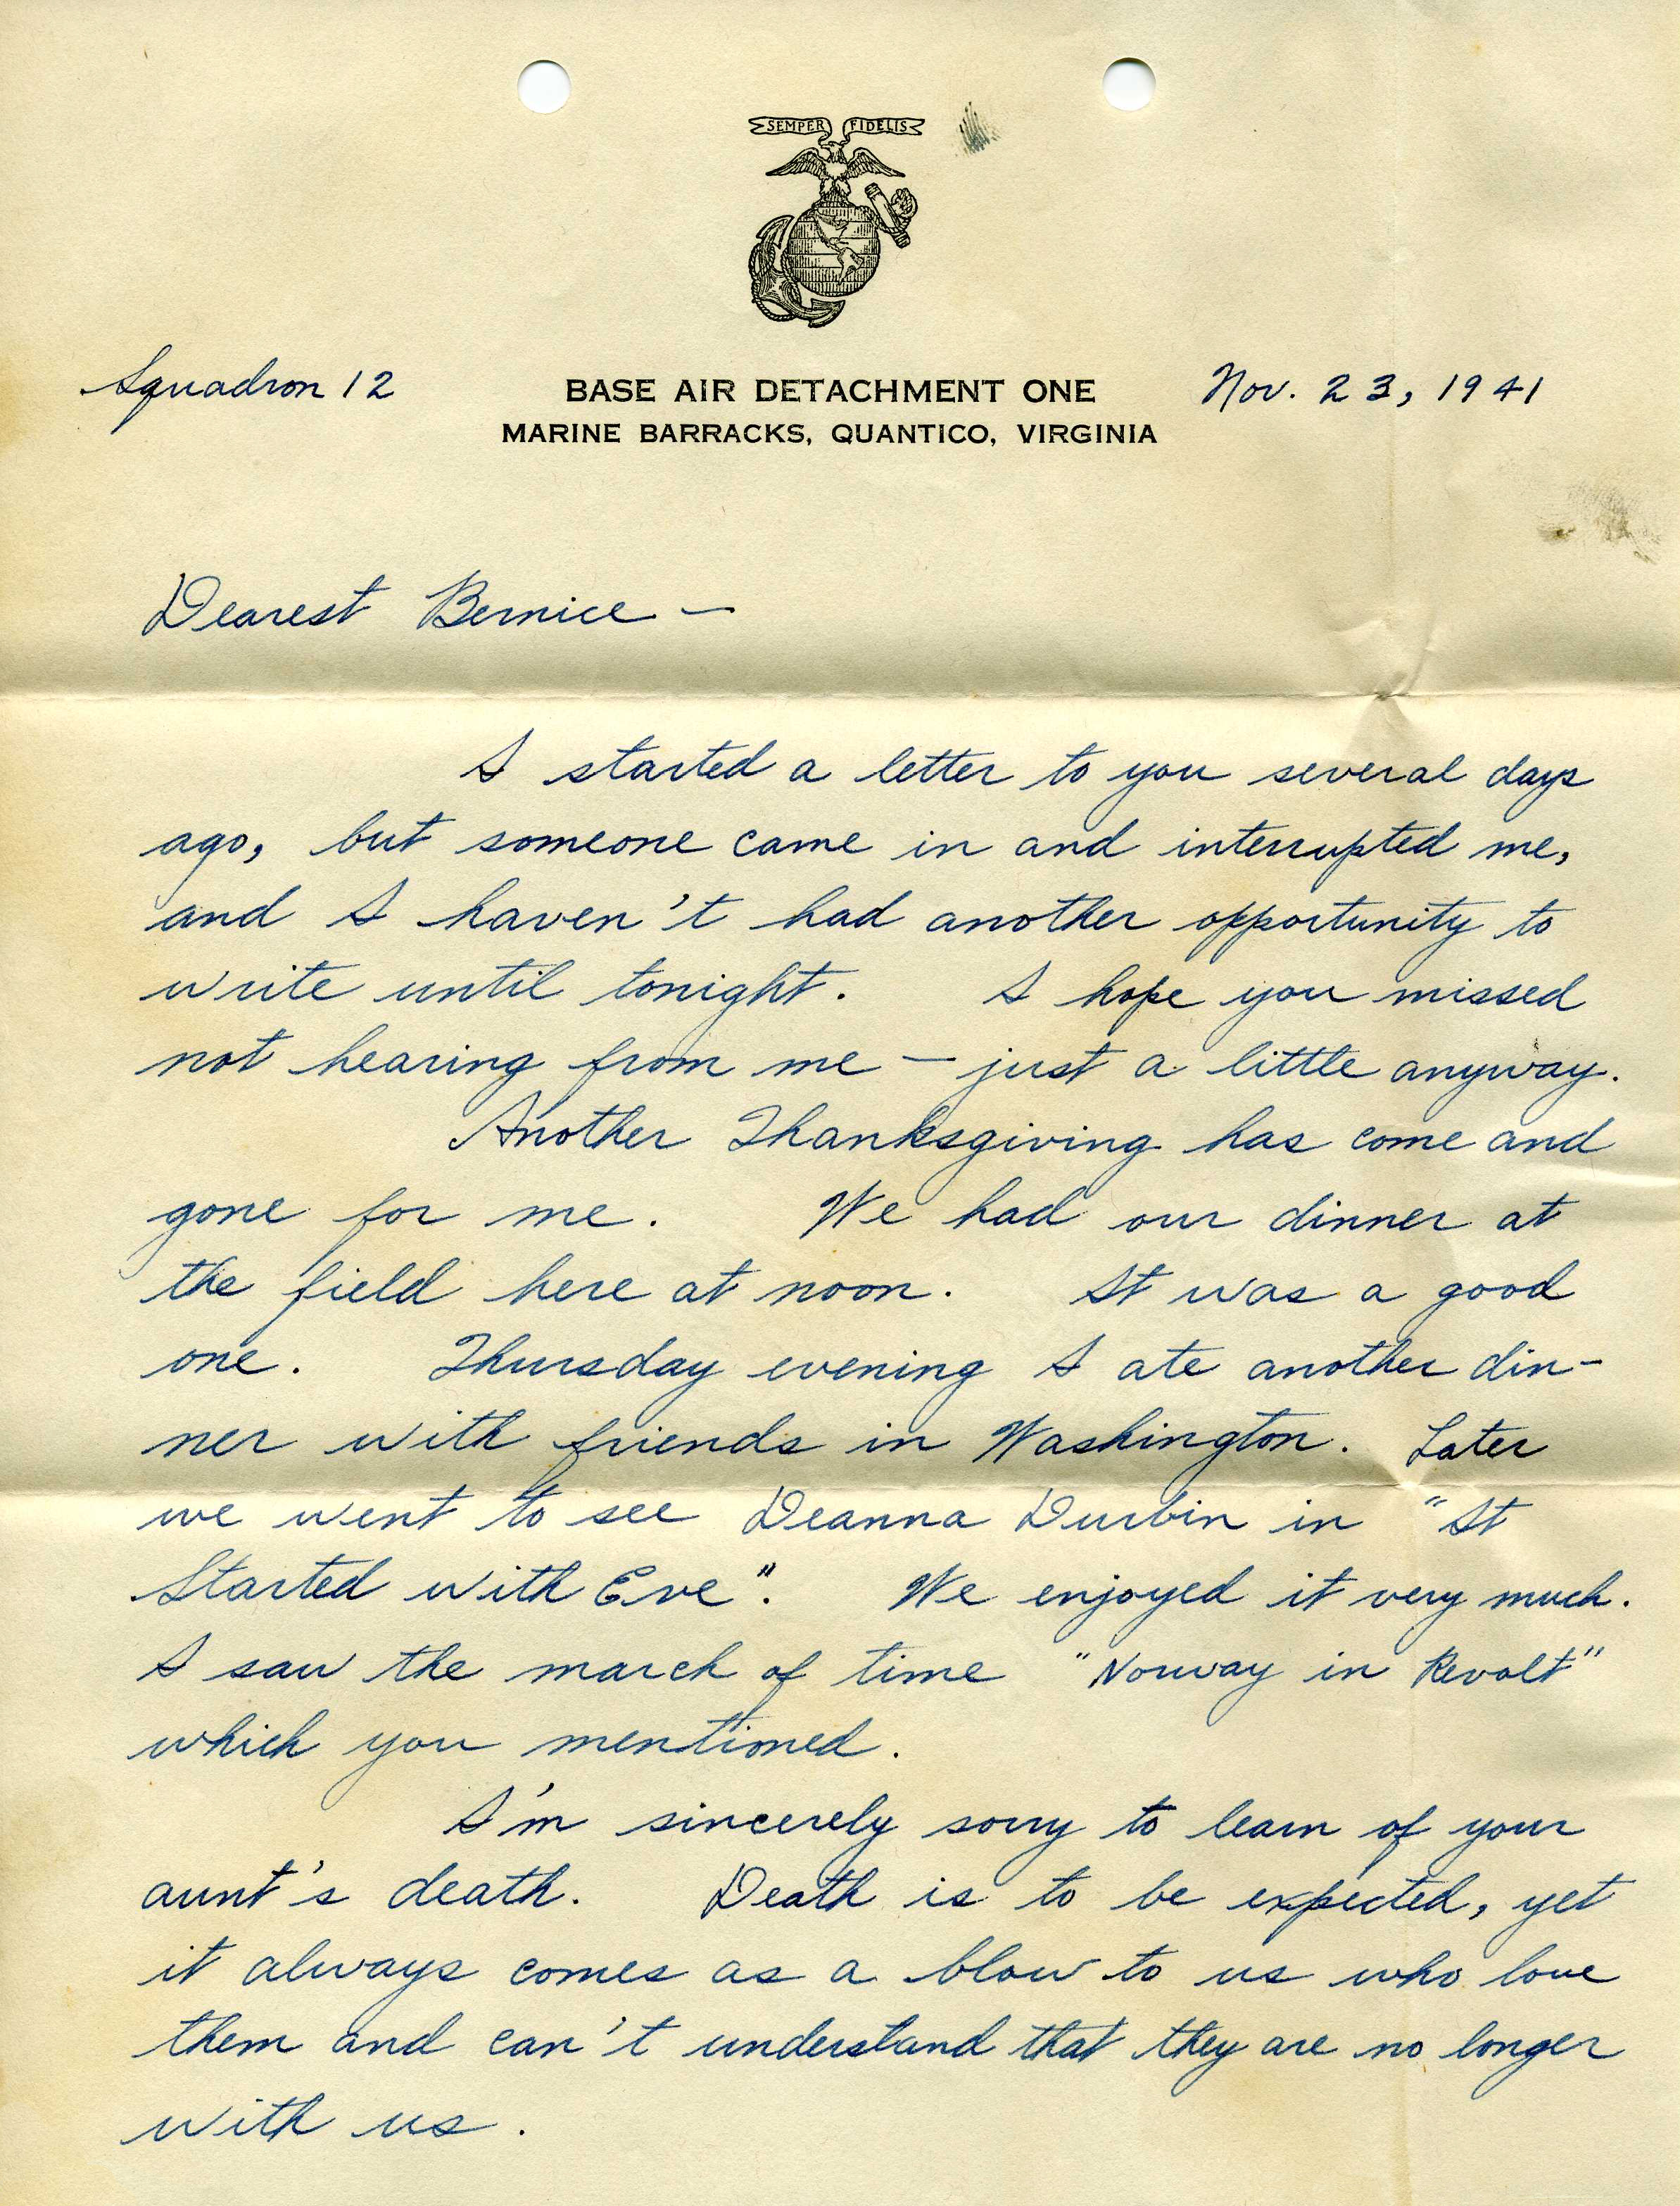 SEMPER FIDELIS
Squadron 12
BASE AIR DETACHMENT ONE
Nov. 23, 1941
MARINE BARRACKS, QUANTICO, VIRGINIA
Dearest Bernice —
I started a letter to you several days
ago, but someone came in and interrupted me,
and I haven't had another opportunity to
write until tonight. I hope you missed
not hearing from me — just a little anyway.
Another Thanksgiving has come and
gone for me. We had our dinner at
the field here at noon. It was a good
one. Thursday evening I ate another din-
ner with friends in Washington. Later
we went to see Deanna Durbin in "It
Started with Eve". We enjoyed it very much.
I saw the march of time "Norway in Revolt"
which you mentioned.
I'm sincerely sorry to learn of your
aunt's death. Death is to be expected, yet
it always comes as a blow to us who love
them and can't understand that they are no longer
with us.